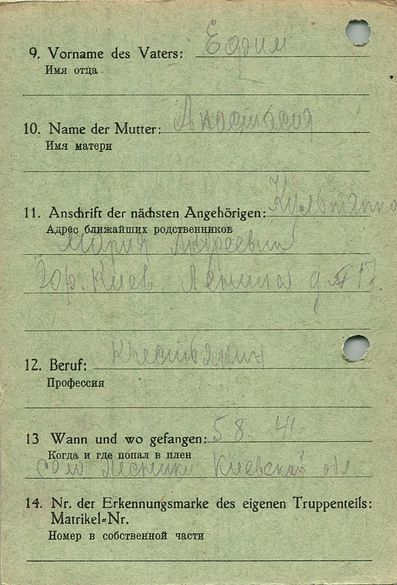 9. Vorname des Vaters: Ефим
Имя отца
10. Name der Mutter: Анастасия
Имя матери
11. Anschrift der nächsten Angehörigen:
Адрес ближайших родственников
Мария Андреевна
Гор. Киев Ленина д № 17
12. Beruf: Крестьянин
Профессия
13 Wann und wo gefangen: 5 8. 41.
Когда и где попал в плен
село Киевской обл
14. Nr. der Erkennungsmarke des eigenen Truppenteils:
Matrikel=Nr.
Номер в собственной части